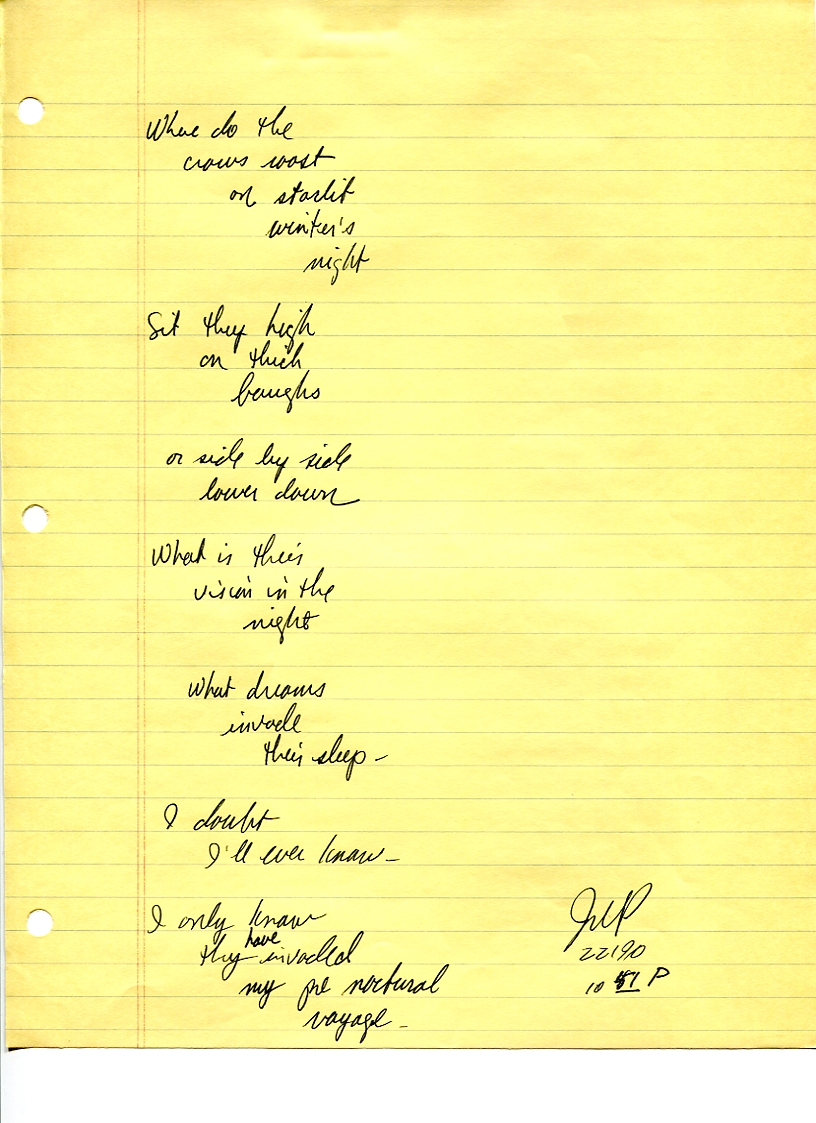 Where do the
crows roost
on starlit
winter's
night
Sit they high
on thick
boughs
or side by side
lower down
What is their
vision in the
night
What dreams
invade
their sleep –
I doubt
I'll ever know –
I only know
they have invaded
my pre nocturnal
voyage –
22190
10 P